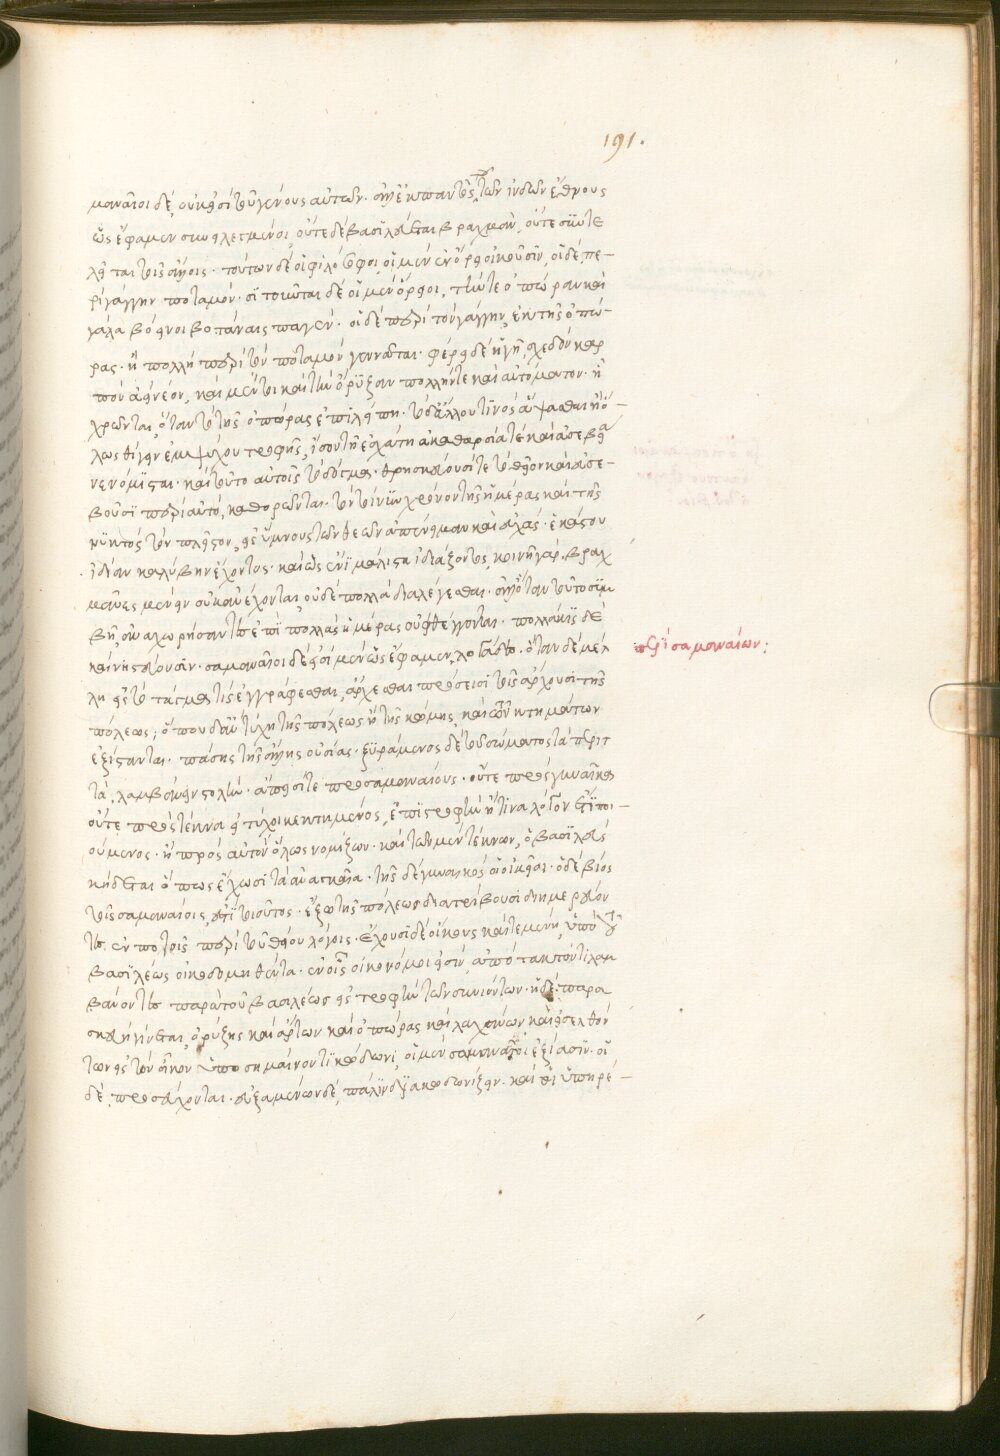 191.
μαναῖοι δέ, οὐκ εἰσὶ τοῦ γένους αὐτῶν· ἀλλ' ἐκ παντὸς τοῦ τῶν ἰνδῶν ἔθνους
ὡς ἔφαμεν συνειλεγμένοι, οὔτε δὲ βασιλεύεται βραχμὰν, οὔτε συντε
λεῖ τι τοῖς ἄλλοις· τούτων δὲ οἱ φιλόσοφοι, οἱ μὲν ἐν ὄρει οἰκοῦσιν, οἱ δὲ πε-
ρὶ γάγγην ποταμόν· σιτοῦνται δὲ οἱ μὲν ὄρειοι, τήντε ὀπώραν καὶ
γάλα βόειον βοτάναις παγέν· οἱ δὲ περὶ τὸν γάγγην, ἐκ τῆς ὀπώ-
ρας· ἣ πολλὴ περὶ τὸν ποταμὸν γεννᾶται· φέρει δὲ ἡ γῆ, σχεδὸν καρ
πὸν ἀεὶ νέον, καὶ μέντοι καὶ τὴν ὄρυζαν πολλήντε καὶ αὐτόματον· ᾗ
χρῶνται, ὅταν τὸ τῆς ὀπώρας ἐπιλείπῃ· τὸ δ' ἄλλου τινὸς ἅψασθαι ἢ ὅ-
λως θίγειν ἐμψύχου τροφῆς, ἴσον τῇ ἐσχάτῃ ἀκαθαρσίᾳ τὲ καὶ ἀσεβείᾳ
νενόμισται· καὶ τοῦτο αὐτοῖς τὸ δόγμα· θρησκεύουσί τε τὸ θεῖον καὶ εὐσε-
βοῦσι περὶ αὐτό, καθορῶνται· τὸν τοίνυν χρόνον τῆς ἡμέρας καὶ τῆς
νυκτὸς τὸν πλεῖστον, εἰς ὕμνους τῶν θεῶν ἀπένειμαν καὶ εὐχάς· ἑκάστου
ἰδίαν καλύβην ἔχοντος· καὶ ὡς ἔνι μάλιστα ἰδιάζοντος, κοινῇ γὰρ βραχ
μᾶνες μένειν οὐκ ἀνέχονται, οὐδὲ πολλὰ διαλέγεσθαι· ἀλλ' ὅταν τοῦτο συμ
βῇ, ἀναχωρήσαντες ἐπὶ πολλὰς ἡμέρας οὐ φθέγγονται· πολλάκις δὲ
καὶ νηστεύουσιν· σαμαναῖοι δέ εἰσι μὲν ὡς ἔφαμεν, λογάδες· ὅταν δὲ μέλ
λῃ εἰς τὸ τάγμα τὶς ἐγγράφεσθαι, ἄρχεσθαι πρόσεισι τοῖς ἄρχουσι τῆς
πόλεως· ὅπου δ' ἂν τύχῃ τῆς πόλεως ἢ τῆς κώμης, καὶ τῶν κτημάτων
ἐξίσταται· πάσης τῆς ἄλλης οὐσίας· ξυράμενος δὲ τοῦ σώματος τὰ περιτ
τὰ, λαμβάνει στολὴν· ἄπεισί τε πρὸς σαμαναίους· οὔτε πρὸς γυναῖκα
οὔτε πρὸς τέκνα εἰ τύχοι κεκτημένος, ἐπιστροφὴν ἤ τινα λόγον ἔτι ποι-
ούμενος· ἢ πρὸς αὐτὸν ὅλως νομίζων· καὶ τῶν μὲν τέκνων, ὁ βασιλεὺς
κήδεται ὅπως ἔχωσι τὰ ἀναγκαῖα· τῆς δὲ γυναικὸς οἱ οἰκεῖοι· ὁ δὲ βίος
τοῖς σαμαναίοις, ἐστὶ τοιοῦτος· ἔξω τῆς πόλεως διατρίβουσι διημερεύον
τες ἐν τοῖς περὶ τοῦ θείου λόγοις· ἔχουσι δὲ οἴκους καὶ τεμένη, ὑπὸ τοῦ
βασιλέως οἰκοδομηθέντα· ἐν οἷς οἰκονόμοι εἰσὶν, ἀπότακτόν τι λαμ
βάνοντες παρὰ τοῦ βασιλέως εἰς τροφὴν τῶν συνιόντων· ἡ δὲ παρα
σκευὴ γίνεται, ὀρύζης καὶ ἄρτων καὶ ὀπώρας καὶ λαχάνων, καὶ εἰσελθόν
των εἰς τὸν οἶκον ὑπὸ σημαίνοντι κώδωνι, οἱ μὴ σαμαναῖοι ἐξίασιν· οἱ
δὲ, προσεύχονται· εὐξαμένων δέ, πάλιν διακωδωνίζειν· καὶ οἱ ὑπηρέ-
περὶ σαμαναίων: